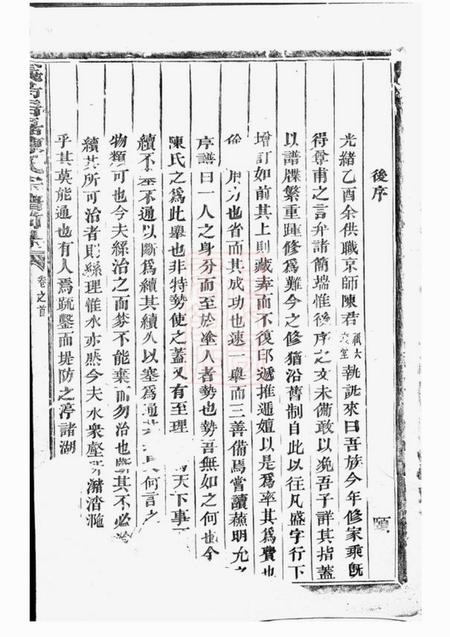 後序
光緒乙酉余供職京師陳君執訊來曰吾族今年修家乘既
得章甫之言弁諸簡端惟後序之文未備敢以凂吾子詳其指蓋
以譜牒繁重踵修為難今之修猶沿舊制自此以往凡盛字行下
增訂如前其上則藏弆而不復印遞推遞嬗以是為率其為費也
用力也省而其成功也速一舉而三善備焉嘗讀蘇明允之
序譜曰一人之身分而至於塗人者勢也勢吾無如之何也今
陳氏之為此舉也非特勢使之蓋又有至理 天下事
續不至不通以斷為續其續久以塞為通 何言之
物類可也今夫絲治之而棼不能棄而勿治也斷其不必
續其所可治者則絲理惟水亦然今夫水衆壑 瀦渟
乎其莫能通也有人焉疏鑿而堤防之渟諸湖
卷之首